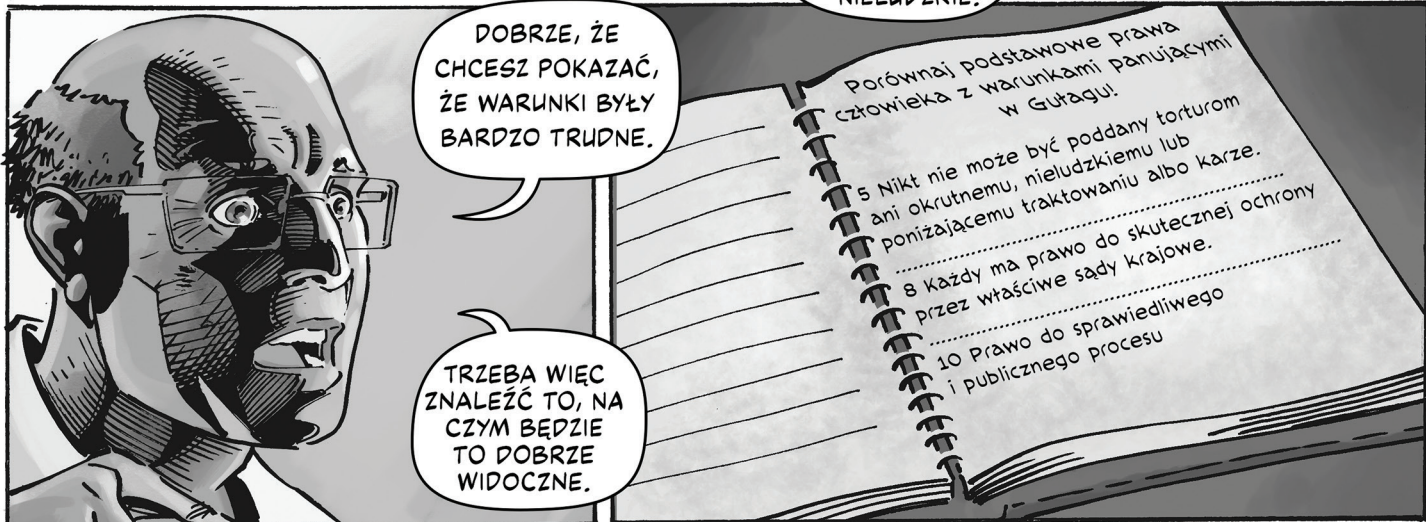 NIELUDZKIE.
DOBRZE, ŻE
CHCESZ POKAZAĆ,
ŻE WARUNKI BYŁY
BARDZO TRUDNE.
TRZEBA WIĘC
ZNALEŹĆ TO, NA
CZYM BĘDZIE
TO DOBRZE
WIDOCZNE.
Porównaj podstawowe prawa
człowieka z warunkami panującymi
w Gułagu!
5 Nikt nie może być poddany torturom
ani okrutnemu, nieludzkiemu lub
poniżającemu traktowaniu albo karze.
8 Każdy ma prawo do skutecznej ochrony
przez właściwe sądy krajowe.
10 Prawo do sprawiedliwego
i publicznego procesu